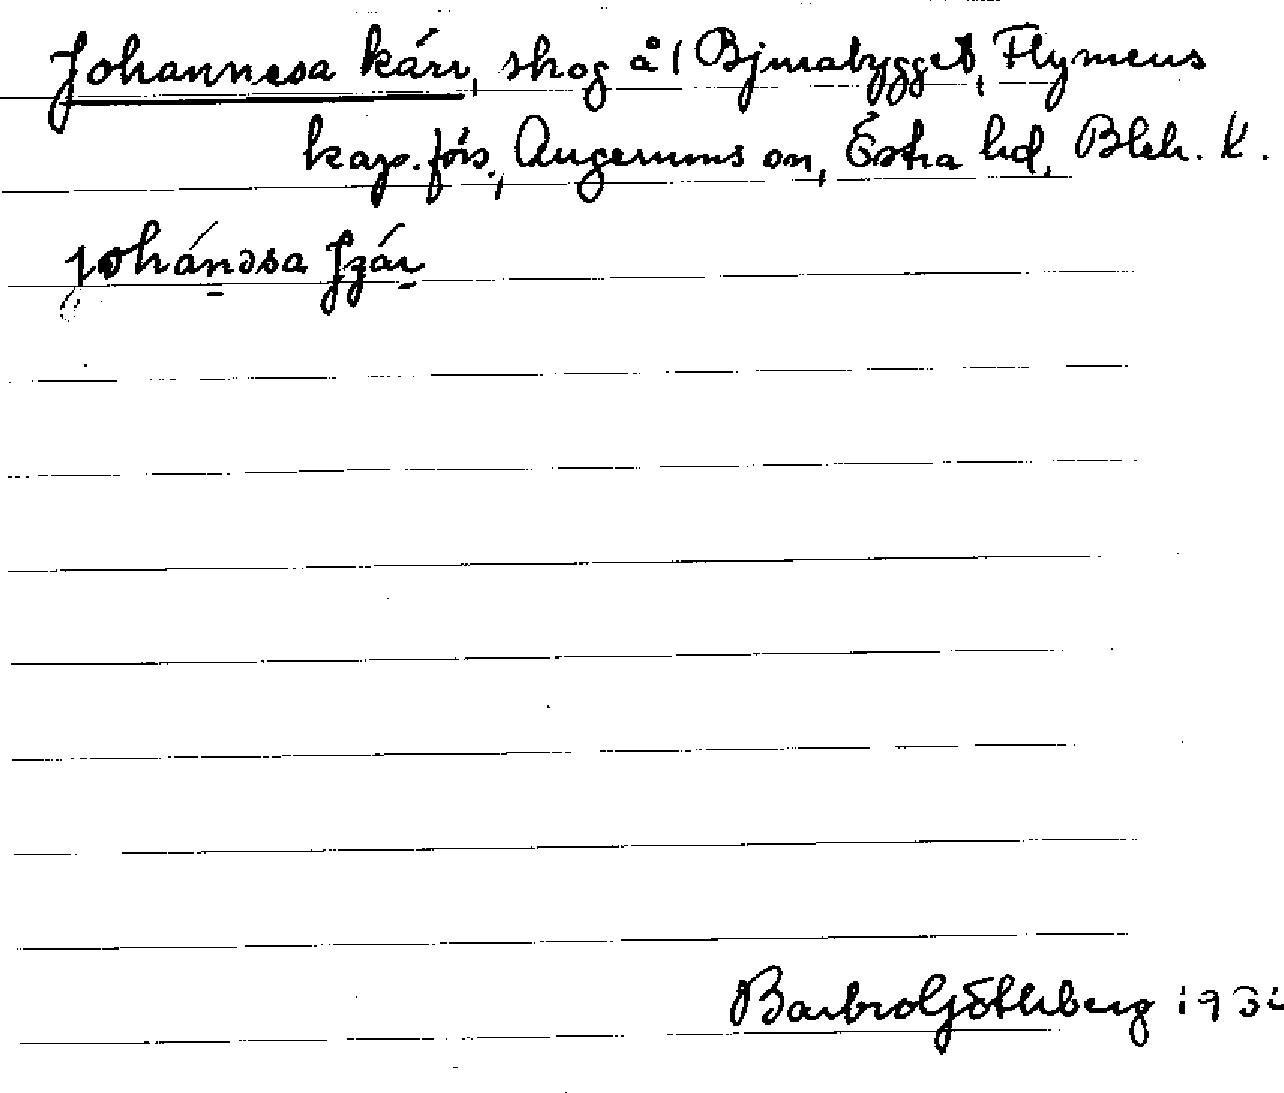 Johannesa kärr, skog å 1 Bjmabygget, Flymens
kap.förs., Augerums sn, Östra hd, Blek. l.
johánəsa
Barbro Göthberg 193